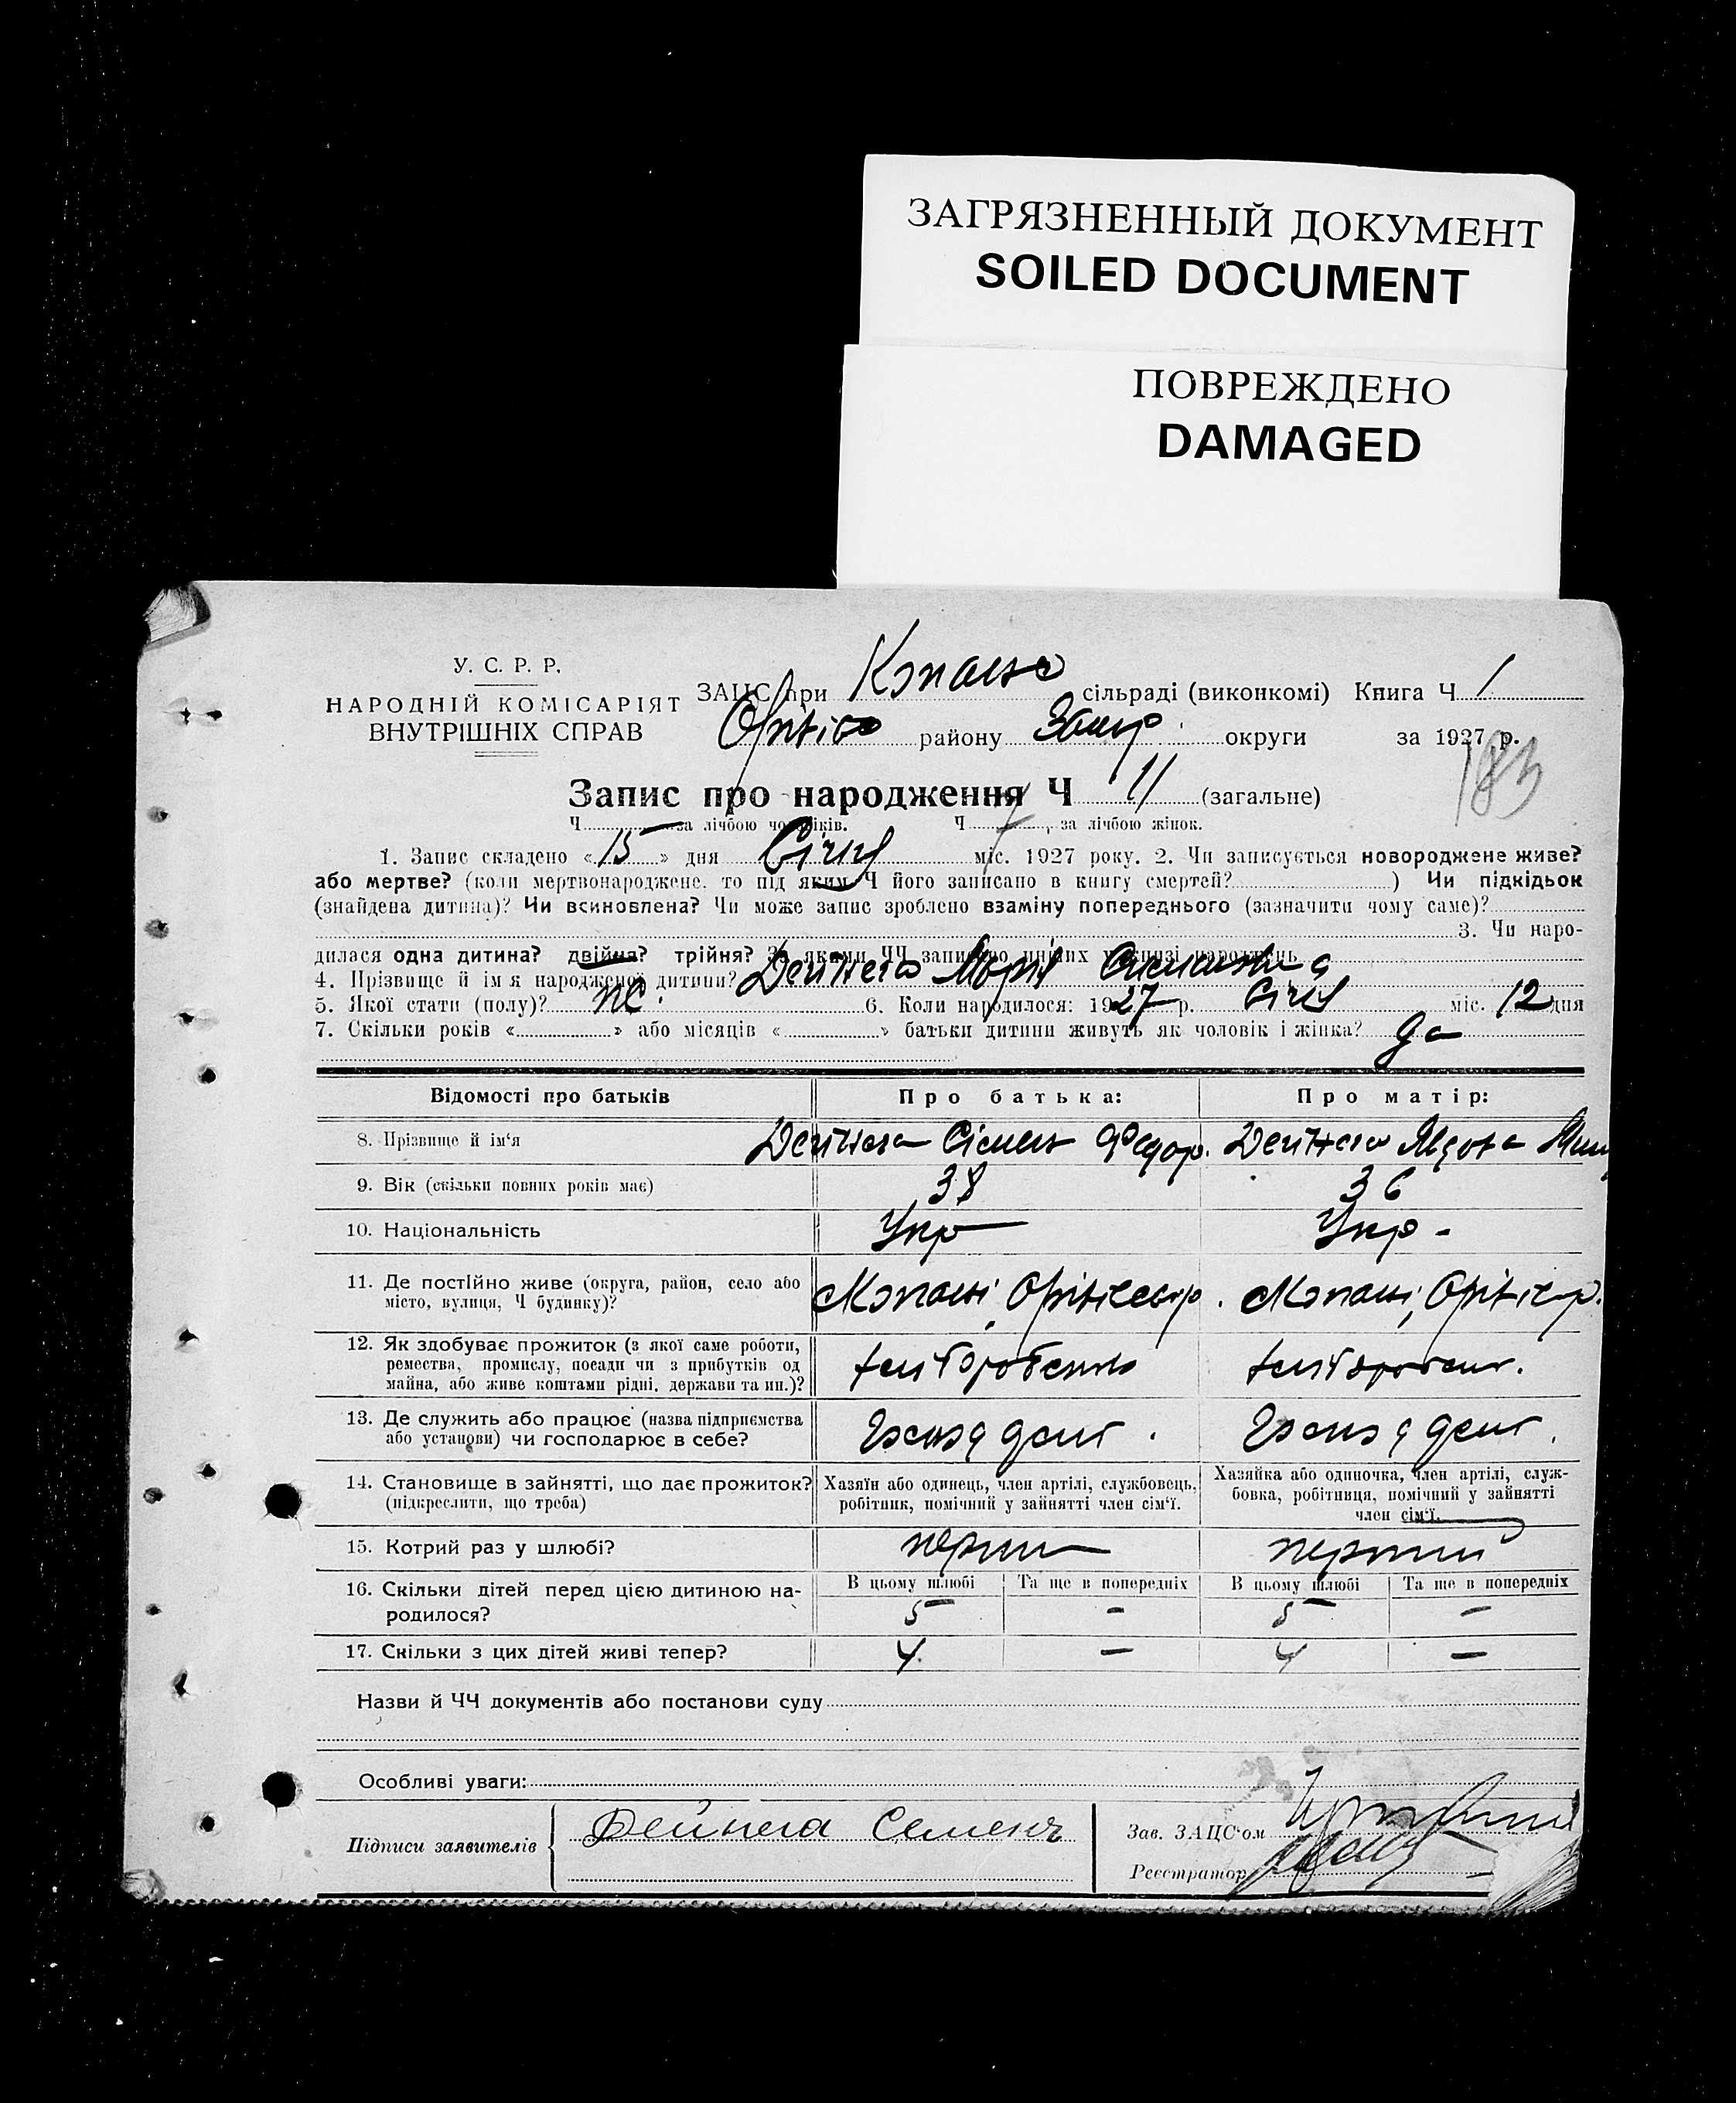 ЗАГРЯЗНЕННЫЙ ДОКУМЕНТ
SOILED DOCUMENT
ПОВРЕЖДЕНО
DAMAGED
У. С. Р. Р.
НАРОДНІЙ КОМІСАРІЯТ
ВНУТРІШНІХ СПРАВ
ЗАЦС при сільраді (виконкомі) Книга Ч 1
району округи за 1927 р.
183
Запис про народження Ч 11 (загальне)
Ч за лічбою чоловіків. Ч 7, за лічбою жінок.
1. Запис складено «15» дня Січня міс. 1927 року. 2. Чи записується новороджене живе?
або мертве? (коли мертвонароджене, то під яким Ч його записано в книгу смертей? ) Чи підкідьок
(знайдена дитина)? Чи всиновлена? Чи може запис зроблено взаміну попереднього (зазначити чому саме)?
3. Чи наро-
дилася одна дитина? двійня? трійня? За якими ЧЧ записано инших у книзі народжень
4. Прізвище й ім'я народженої дитини? Дейнега Марія
5. Якої стати (полу)? Ж. 6. Коли народилося: 1927 р. Січня міс. 12 дня
7. Скільки років « » або місяців « » батьки дитини живуть як чоловік і жінка? да
Відомості про батьків Про батька: Про матір:
8. Прізвище й ім'я Дейнега Сімен Федор. Дейнега Явдоха
9. Вік (скільки повних років має) 38 36
10. Національність Укр Укр -
11. Де постійно живе (округа, район, село або
місто, вулиця, Ч будинку)?
12. Як здобуває прожиток (з якої саме роботи,
ремества, промислу, посади чи з прибутків од
майна, або живе коштами рідні, держави та ин.)?
хліборобством хлібороб.
13. Де служить або працює (назва підприємства
або установи) чи господарює в себе?
14. Становище в зайнятті, що дає прожиток?
(підкреслити, що треба)
Хазяїн або одинець, член артілі, службовець,
робітник, помічний у зайнятті член сім'ї.
Хазяйка або одиночка, член артілі, служ-
бовка, робітниця, помічний у зайнятті
член сім'ї.
15. Котрий раз у шлюбі? перший перший
16. Скільки дітей перед цією дитиною на-
родилося?
В цьому шлюбі Та ще в попередніх В цьому шлюбі Та ще в попередніх
5 - 5 -
17. Скільки з цих дітей живі тепер? 4 - 4 -
Назви й ЧЧ документів або постанови суду
Особливі уваги:
Підписи заявителів Дейнега Семенъ
Зав. ЗАЦС'ом
Реєстратор